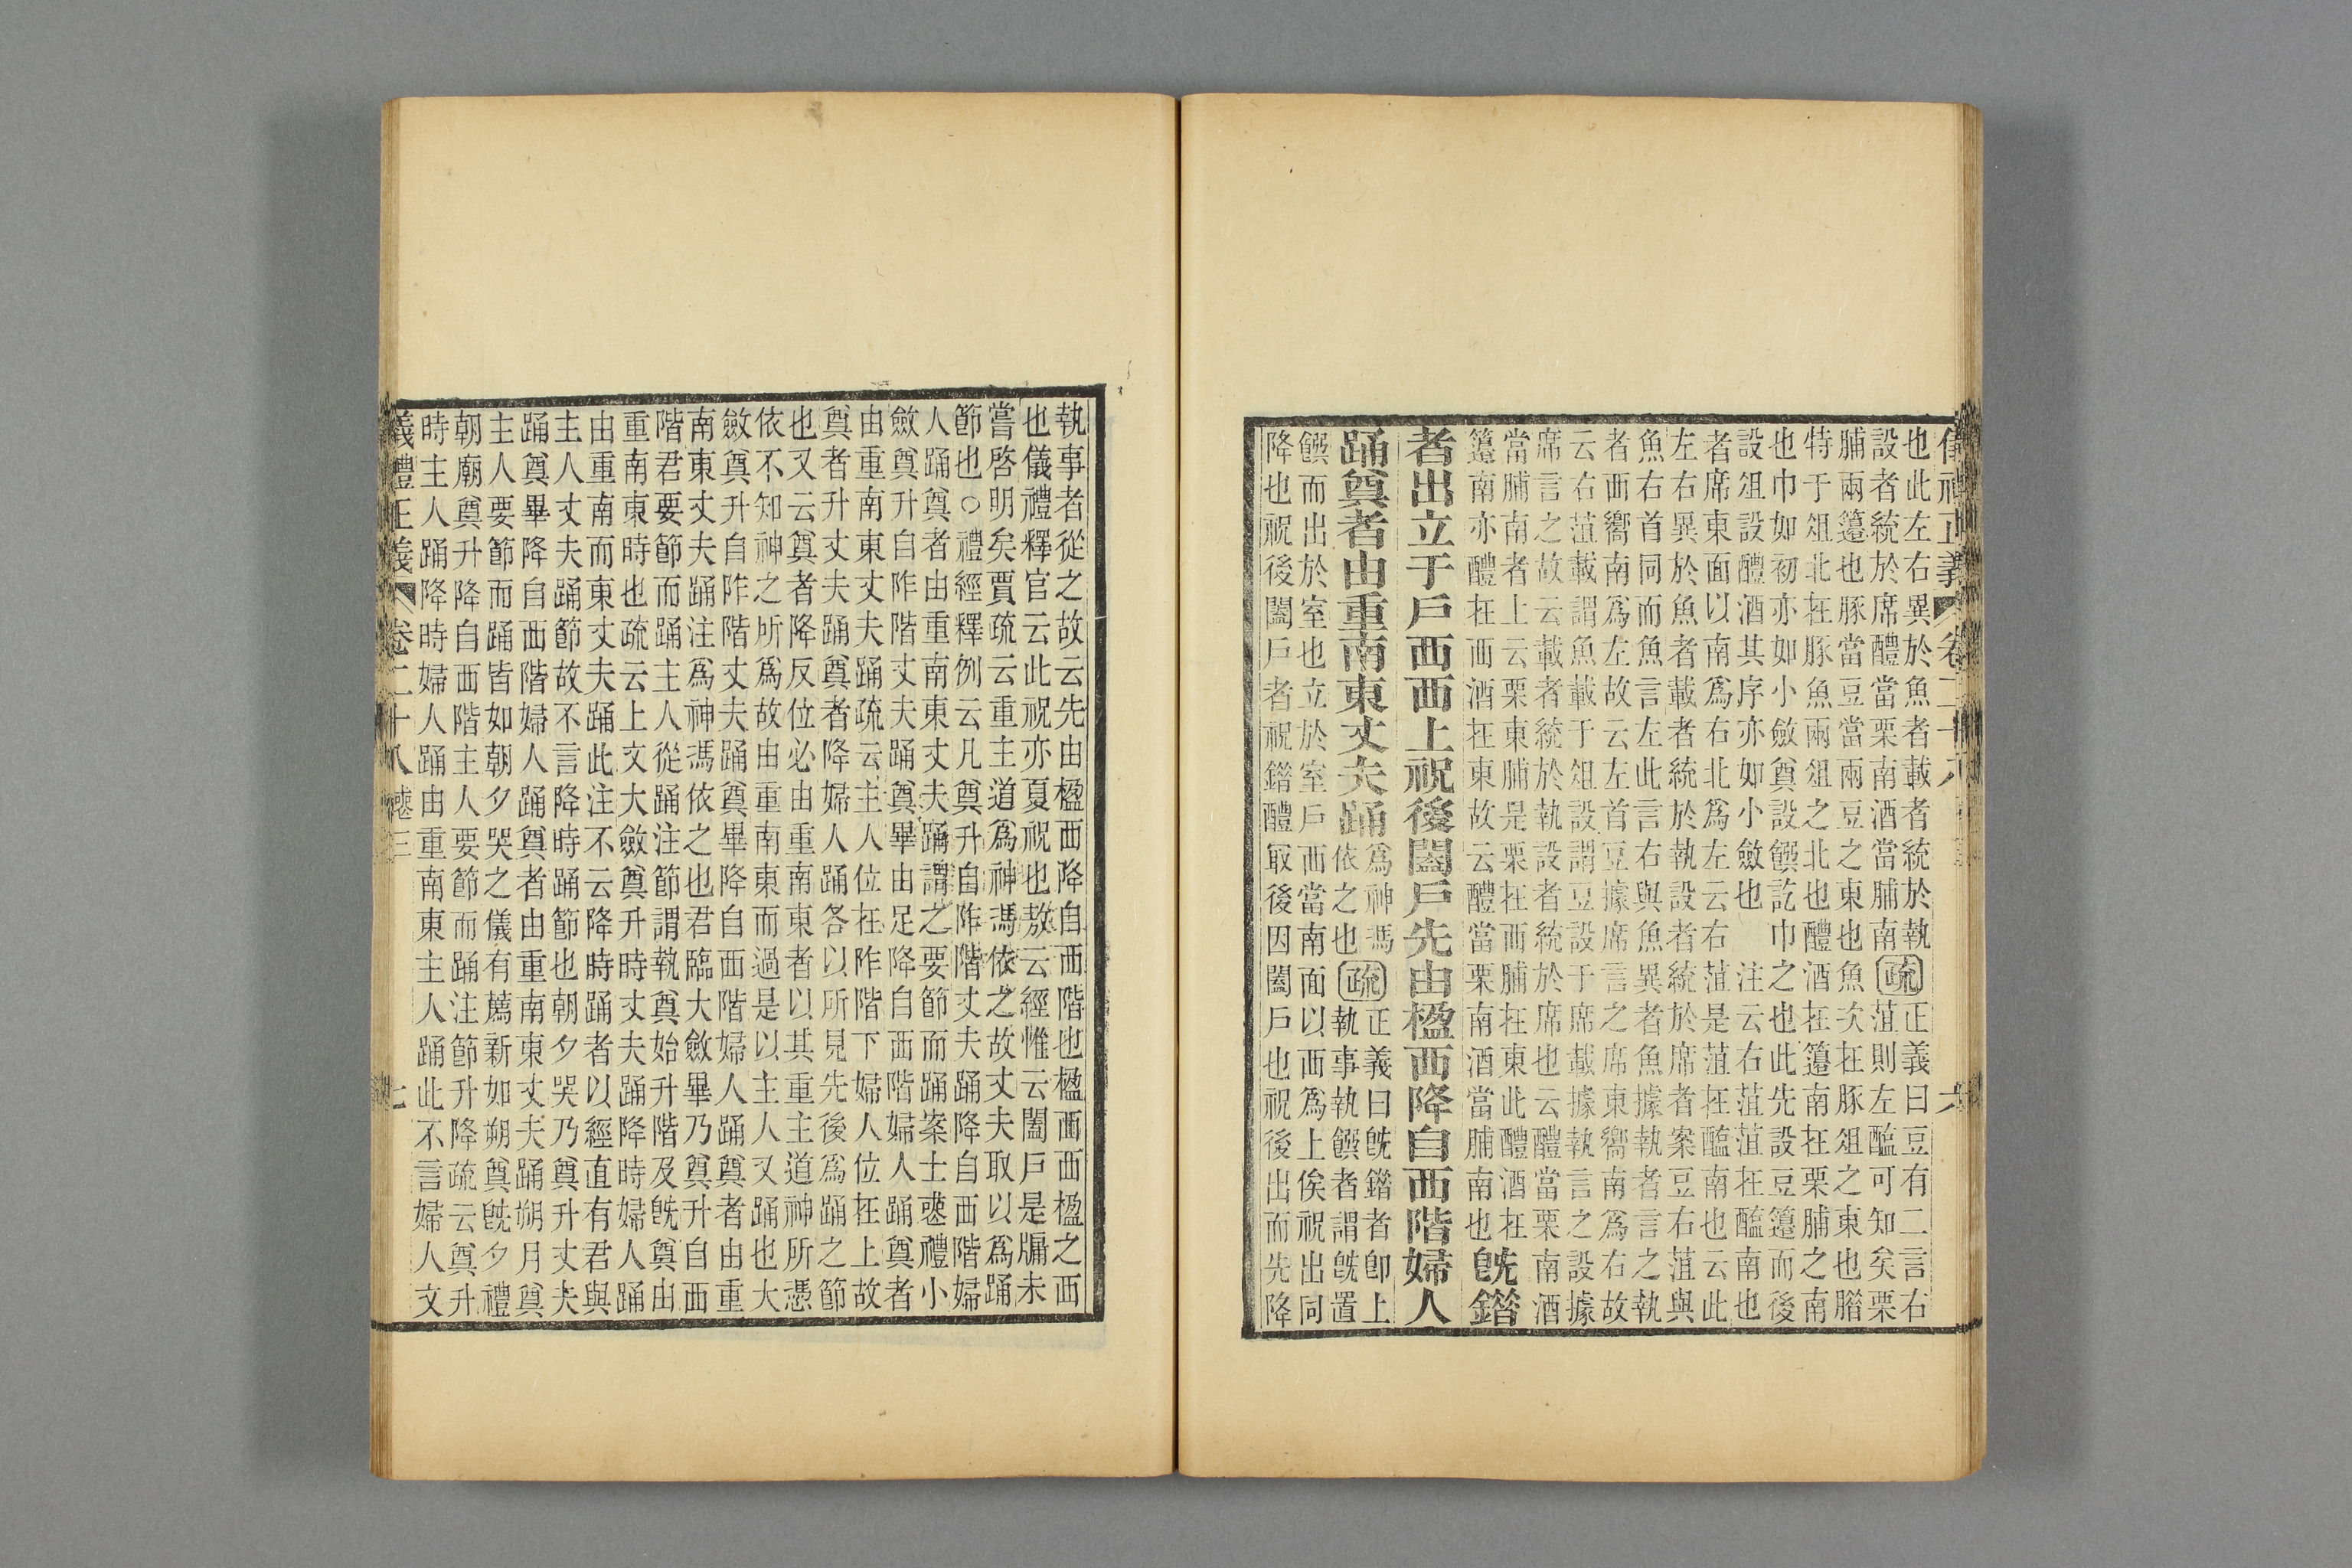 儀禮正義 卷二十八 六
也此左右異於魚者載者統於執
設者統於席醴當栗南酒當脯南
疏
正義曰豆有二言右
菹則左醢可知矣栗
脯兩籩也豚當豆當兩豆之東也魚次在豚俎之東也腊
特于俎北在豚魚兩俎之北也醴酒在籩南在栗脯之南
也巾如初亦如小斂奠設饌訖巾之也此先設豆籩而後
設俎設醴酒其序亦如小斂也 注云右菹菹在醢南也
者席東面以南爲右北爲左云右菹是菹在醢南也云此
左右異於魚者載者統於執設者統於席者案豆右菹與
魚右首同而魚言左此言右與魚異者魚據執者言之執
者西嚮南爲左故云左首豆據席言之席東嚮南爲右故
云右菹載謂魚載于俎設謂豆設于席載據執言之設據
席言之故云載者統於執設者統於席也云醴當栗南酒
當脯南者上云栗東脯是栗在西脯在東此醴酒在
籩南亦醴在西酒在東故云醴當栗南酒當脯南也
既錯
者出立于戶西西上祝後闔戶先由楹西降自西階婦人
踊奠者由重南東丈夫踊
爲神馮
依之也
疏
正義曰既錯者即上
執事執饌者謂既置
饌而出於室也立於室戶西當南面以西爲上俟祝出同
降也祝後闔戶者祝錯醴最後因闔戶也祝後出而先降
執事者從之故云先由楹西降自西階也楹西西楹之西
也儀禮釋官云此祝亦夏祝也敖云經惟云闔戶是牖未
嘗啓明矣賈疏云重主道爲神馮依之故丈夫取以爲踊
節也○禮經釋例云凡奠升自阼階丈夫踊降自西階婦
人踊奠者由重南東丈夫踊謂之要節而踊案士喪禮小
斂奠升自阼階丈夫踊奠畢由足降自西階婦人踊奠者
由重南東丈夫踊疏云主人位在阼階下婦人位在上故
奠者升丈夫踊奠者降婦人踊各以所見先後爲踊之節
也又云奠者降反位必由重南東者以其重主道神所憑
依不知神之所爲故由重南東而過是以主人又踊也大
斂奠升自阼階丈夫踊奠畢降自西階婦人踊奠者由重
南東丈夫踊注爲神馮依之也君臨大斂畢乃奠升自西
階君要節而踊主人從踊注節謂執奠始升階及既奠由
重南東時也疏云上文大斂奠升時丈夫踊降時婦人踊
由重南而東丈夫踊此注不云降時踊者以經直有君與
主人丈夫踊節故不言降時踊節也朝夕哭乃奠升丈夫
踊奠畢降自西階婦人踊奠者由重南東丈夫踊朔月奠
主人要節而踊皆如朝夕哭之儀有薦新如朔奠既夕禮
朝廟奠升降自西階主人要節而踊注節升降疏云奠升
時主人踊降時婦人踊由重南東主人踊此不言婦人文
儀禮正義 卷二十八 喪三 七